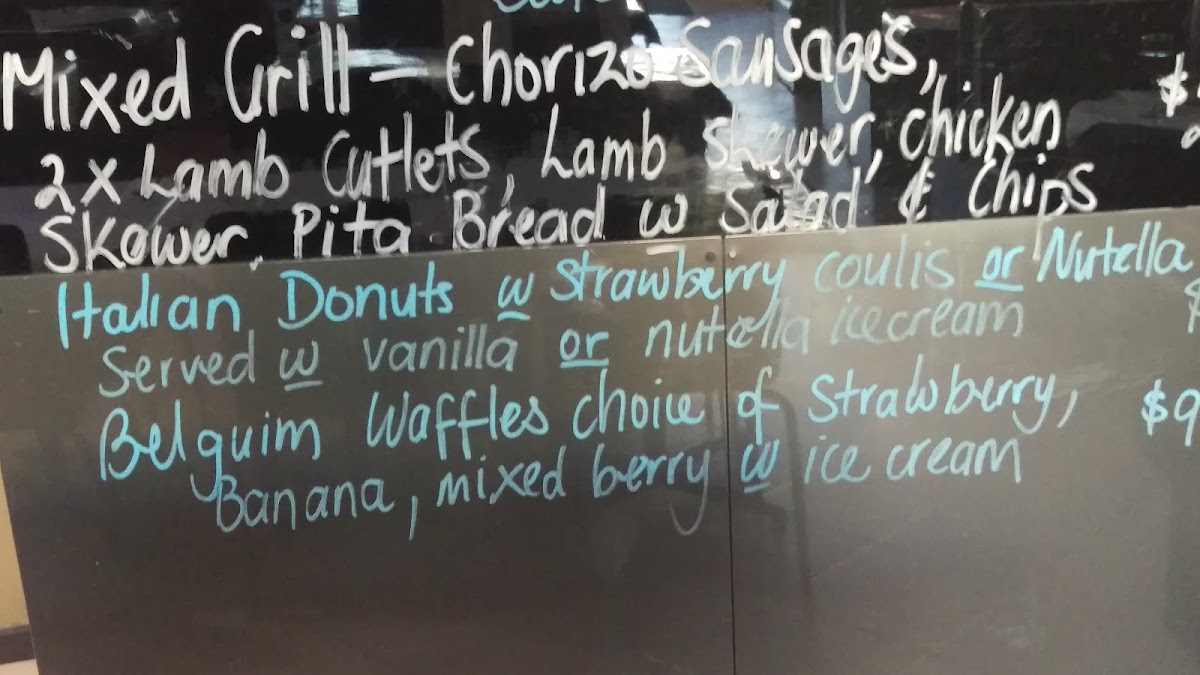 Mixed Grill - Chorizo Sausages, $
2 x Lamb Cutlets, Lamb Skewer, Chicken
Skower, Pita Bread w Salad & Chips
Italian Donuts w Strawberry coulis or Nutella
Served w vanilla or nutella icecream $
Belguim Waffles choice of Strawberry, $9
Banana, mixed berry w ice cream